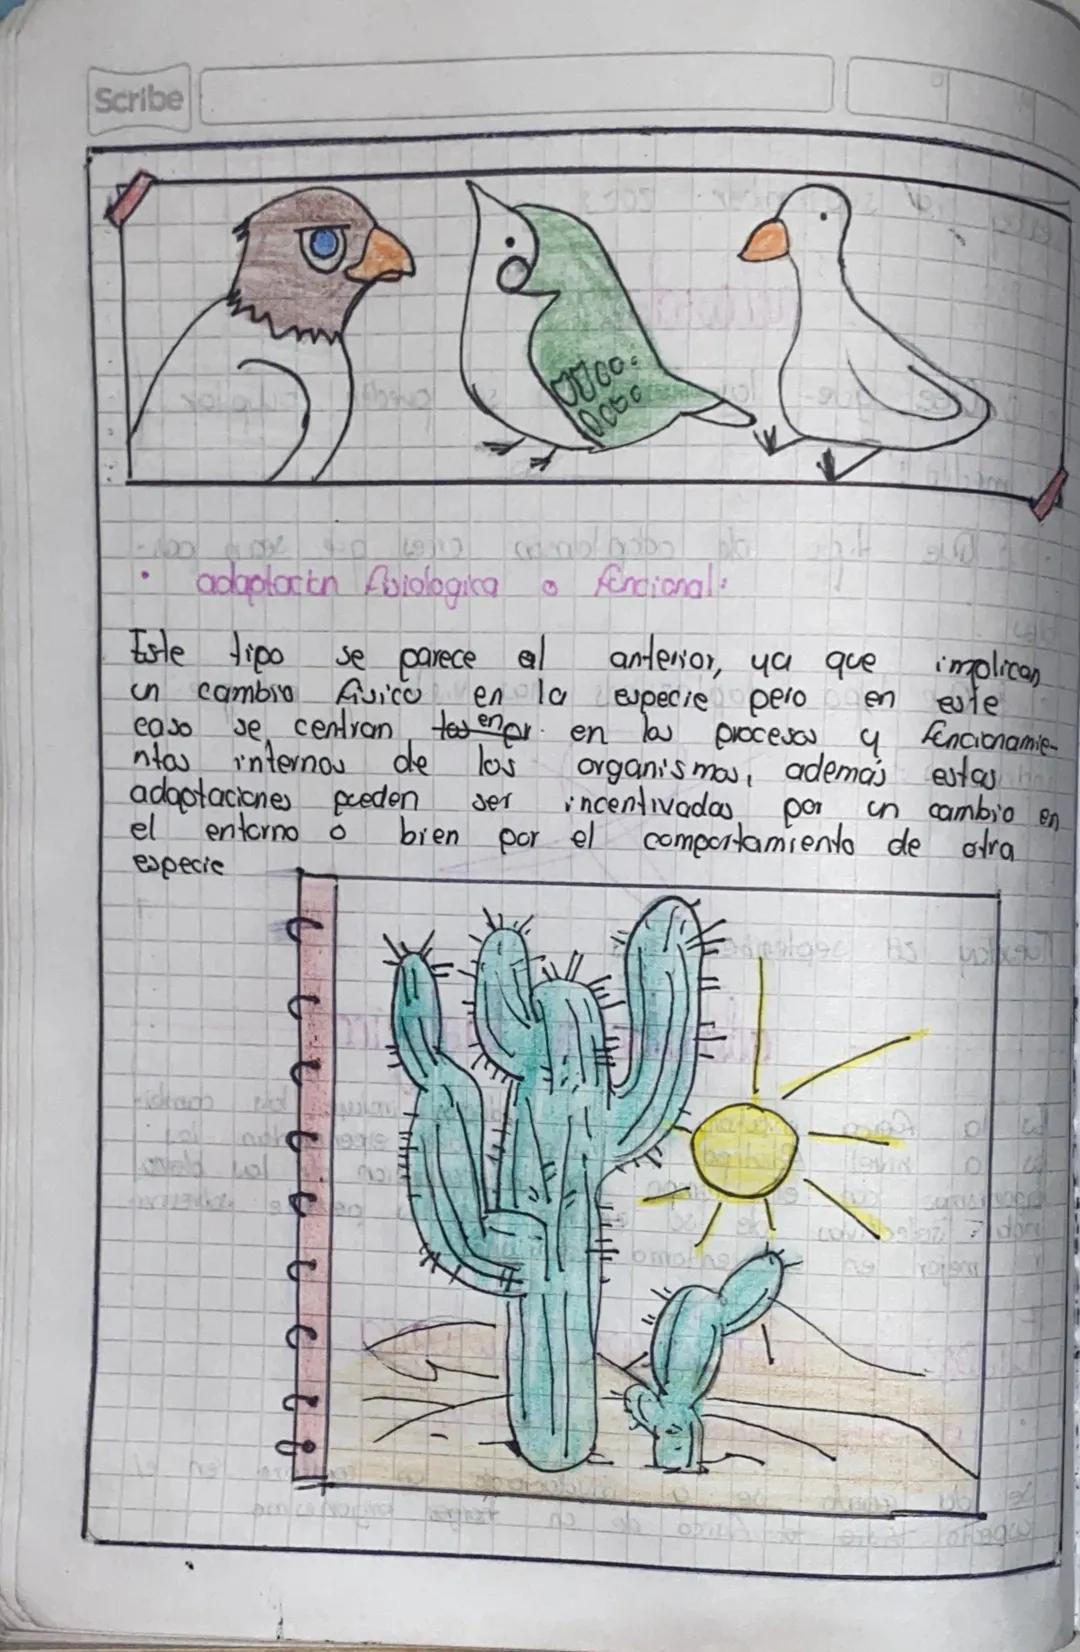 Scribe
• adaptación fisiologica o funcional:
Este tipo se parece al anterior, ya que implican
un cambio físico en la especie pero en este
caso se centran en los procesos y funcionamie-
ntos internos de los organismos, además estas
adaptaciones pueden ser incentivadas por un cambio en
el entorno o bien por el comportamiento de otra
especie